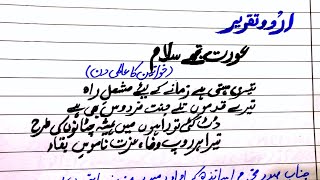 اردو تقریر
عورت تجھے سلام
(خواتین کا عالمی دن)
تیری ہستی ہے زمانے کے لئے مشعل راہ
تیرے قدموں تلے جنت فردوس بھی ہے
ڈٹ گئی تو راہوں میں چٹانوں کی طرح
تیرا ہر روپ وفا، عزت ناموس بقاء
جناب صدر